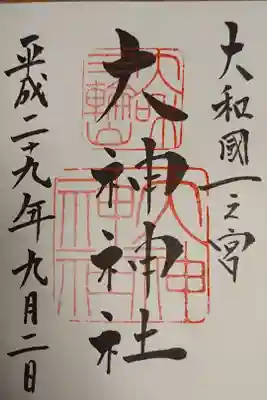 大和國一之宮
大神神社
平成二十九年九月二日